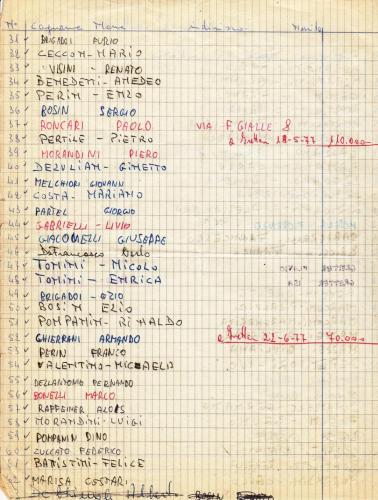 N° Cognome Nome indirizzo
31 BRIGADOI FURIO
32 CECCON - MARIO
33 VISINI - RENATO
34 BENEDETTI - AMEDEO
35 PERIN - ENZO
36 BOSIN SERGIO
37 RONCARI PAOLO VIA F. GIALLE 8
38 PERTILE - PIETRO 18-5-77 110.000
39 MORANDINI PIERO
40 DEZULIAN - GINETTO
41 MELCHIORI GIOVANNI
42 COSTA - MARIANO
43 PARTEL GIORGIO
44 GABRIELLI - LIVIO
45 GIACOMELLI GIUSEPPE
46 Defrancesco
47 TONINI - NICOLO
48 TONINI - ENRICA
49 BRIGADOI - EZIO
50 BOSIN EZIO
51 POMPANIN - RINALDO
52 GHIERRANI ARMANDO 21-6-77 70.000
53 PERIN FRANCO
54 VALENTINO - MICHAELA
55 DELLANTONIO FERNANDO
56 BONELLI MARCO
57 RAFFEINER ALOIS
58 MORANDINI - LUIGI
59 POMPANIN DINO
60 ZUCCATO FEDERICO
61 BATTISTINI - FELICE
62 MARISA COSTARI